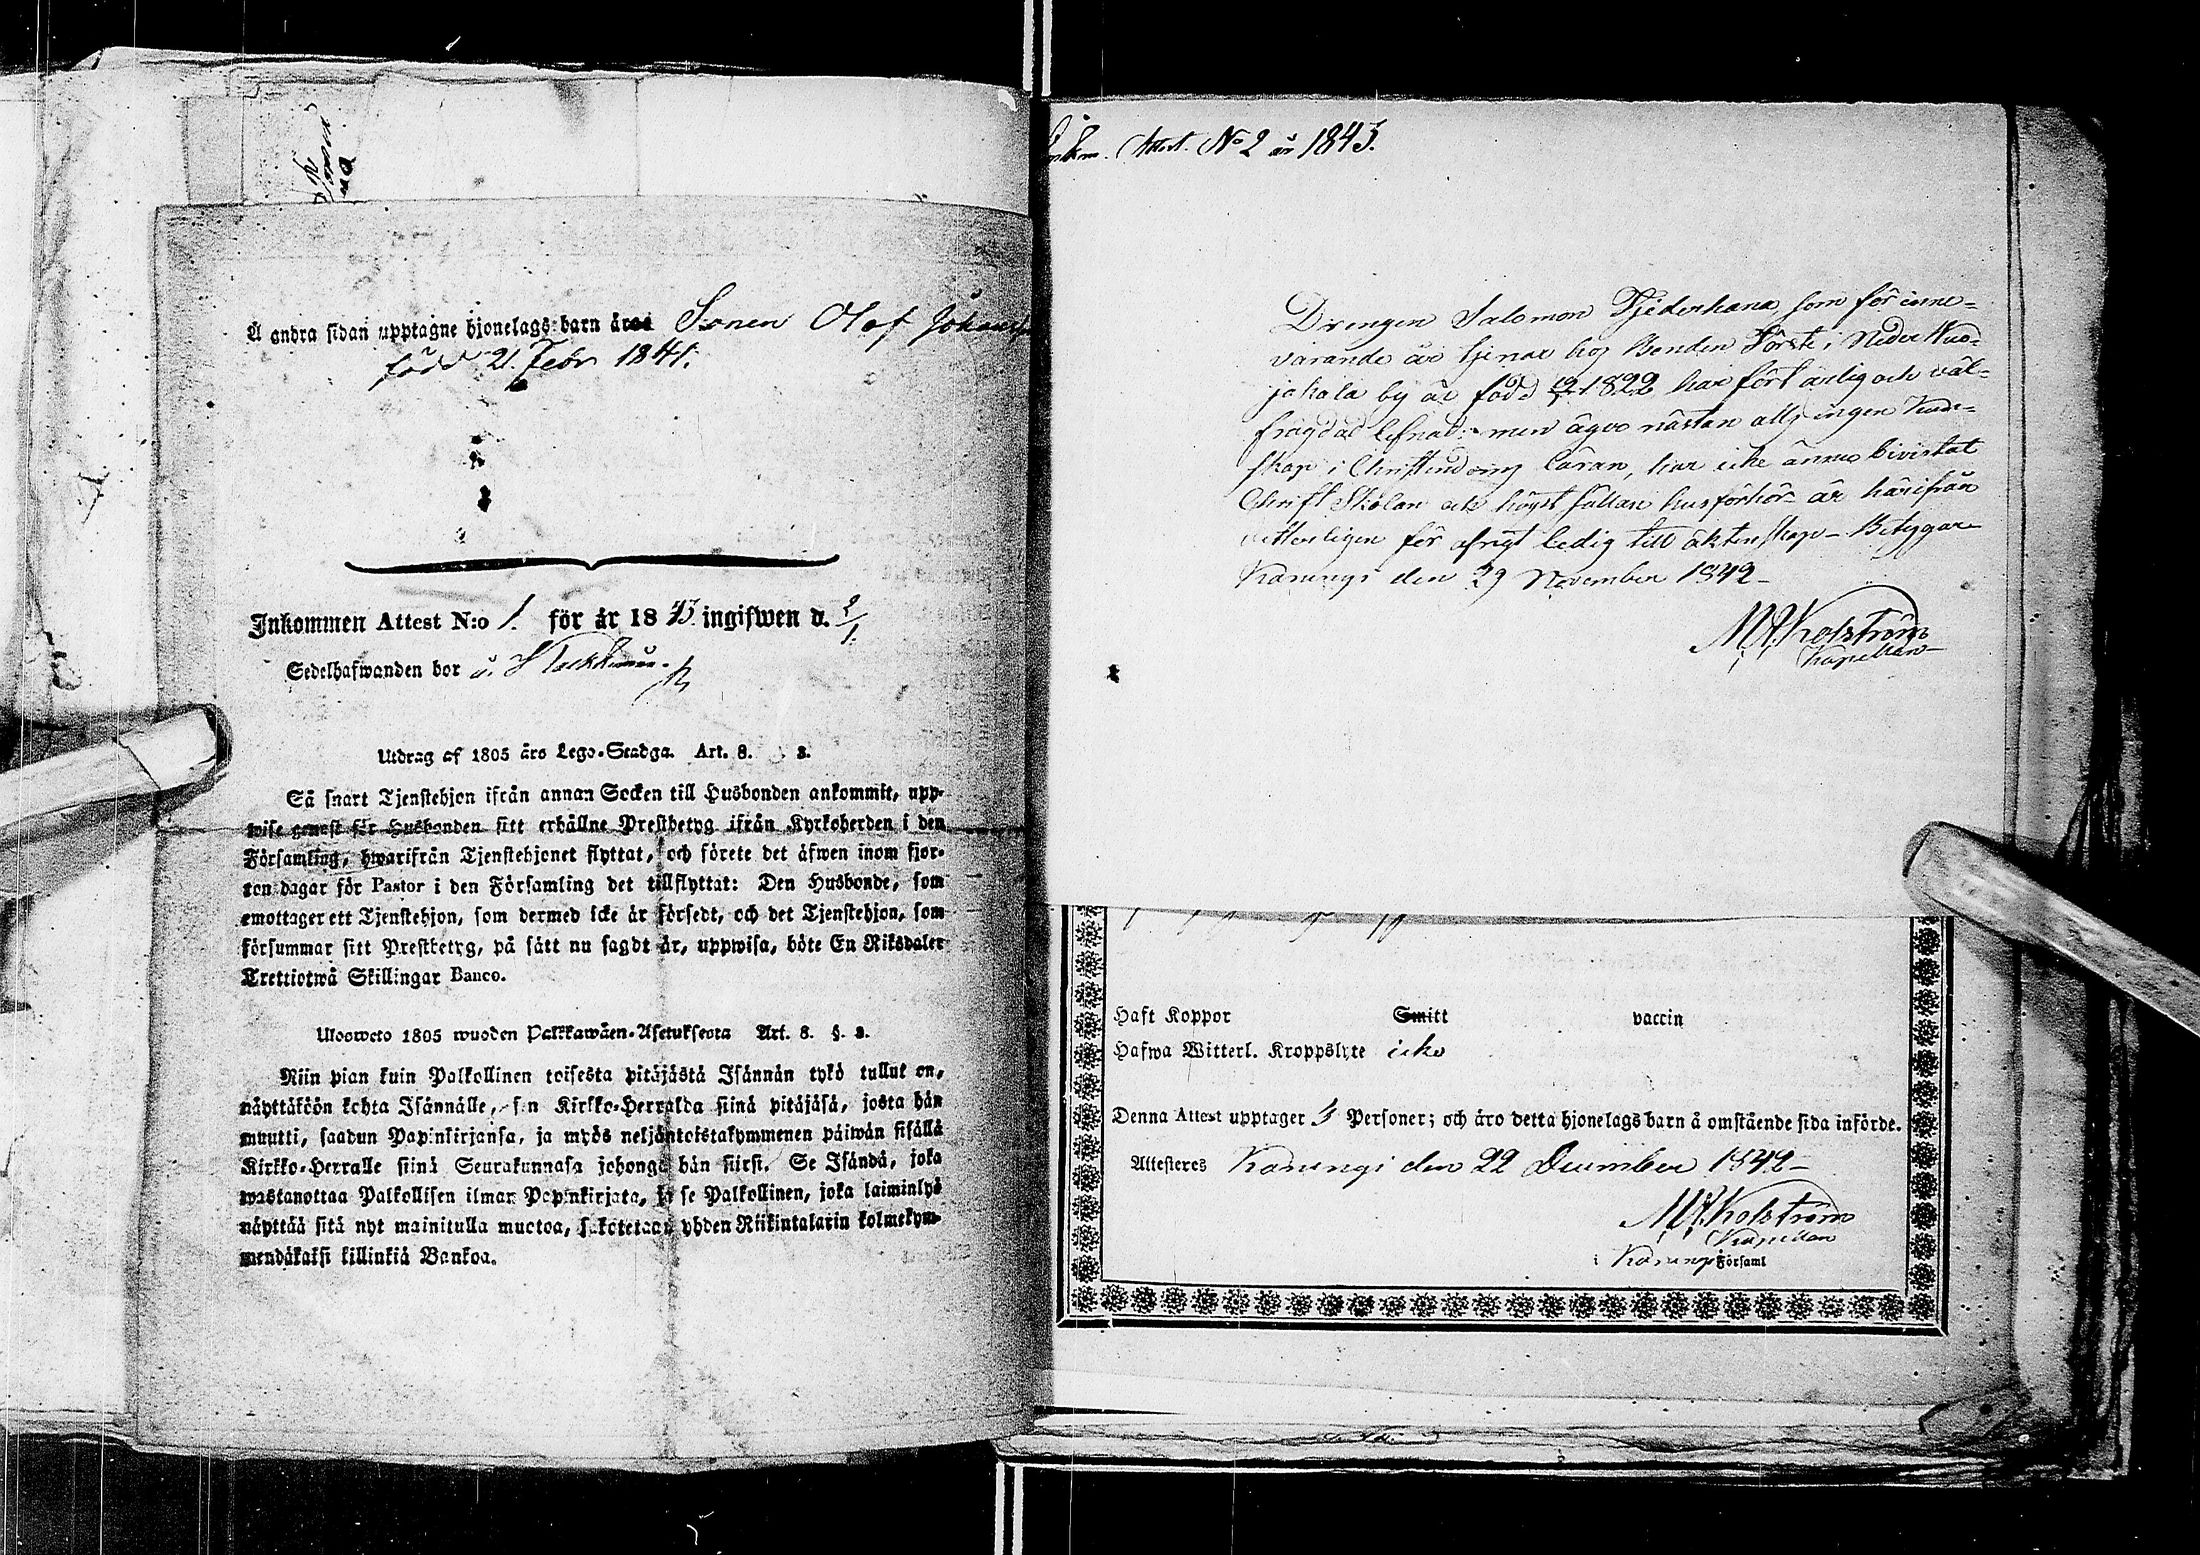 Å andra sidan upptagne hjonelags-barn äro Sonen Olof Johan
född 21. Febr 1841.
Inkommen Attest N:o 1. för år 1843 ingifwen d. 2/1.
Sedelhafwanden bor
Utdrag af 1805 års Lego-Stadga. Art. 8. 3.
Så snart Tjenstehjon ifrån annan Socken till Husbonden ankommit, upp-
wise genast för Husbonden sitt erhållne Prestbetyg ifrån Kyrkoherden i den
Församling, hwarifrån Tjenstehjonet flyttat, och förete det äfwen inom fjor-
ton dagar för Pastor i den Församling det tillflyttat: Den Husbonde, som
emottager ett Tjenstehjon, som dermed icke är försedt, och det Tjenstehjon, som
försummar sitt Prestbetyg, på sätt nu sagdt är, uppwisa, böte En Riksdaler
Trettiotwå Skillingar Banco.
Ulosweto 1805 wuoden Palkkawäen-Asetuksesta Art. 8. §. 3.
Niin pian kuin Palkollinen toisesta pitäjästä Isännän tykö tullut on,
näyttäköön kohta Isännälle, sen Kirkko-Herralda siinä pitäjäsä, josta hän
muutti, saadun Papinkirjansa, ja myös neljäntoistakymmenen päiwän sisällä
Kirkko-Herralle siinä Seurakunnasa johonga hän siirsi. Se Isändä, joka
wastanottaa Palkollisen ilman Papinkirjata, ja se Palkollinen, joka laiminlyö
näyttää sitä nyt mainitulla muotoa, sakotetaan yhden Riikintalarin kolmekym-
mendäkaksi killinkiä Bankoa.
Inkom. Attest. No 2 år 1843.
Drengen Salomon Tjäderhane, som för inne-
varande år tjenar hos Bonden Förste i Neder Wuo-
jakala by är född 1822 har fört ärlig och väl-
frägdad lefnad; men äger nästan alls ingen Kun-
skap i Christendoms läran, har icke ännu bivistat
Skriftskolan och högst sällan husförhör är härifrån
vetterligen för öfrigt ledig till äktenskap - Betygar
Karungi den 29 November 1842 -
Kolström
Kapellan
Haft Koppor Smitt vaccin
Hafwa Witterl. Kroppslyte icke
Denna Attest upptager 3 Personer; och äro detta hjonelags barn å omstående sida införde.
Attesteres Karungi den 22 December 1842 -
Kolström
Kapellan
i Karungi Församl